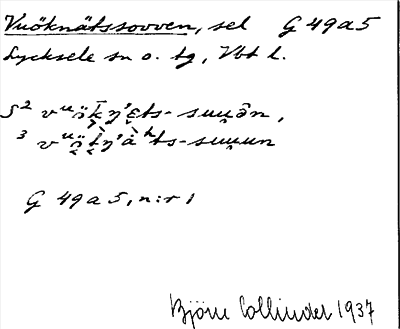 Vuöknätssovven, sel G 49a5
Lycksele sn o. tg, Vbt l.
S² vᵘök̄ŋ'ɛts-suu̯ôn,
³ vᵘöt̄ŋ'àʰts-suu̯un
G 49a5, n:r 1
Björn Collinder 1937